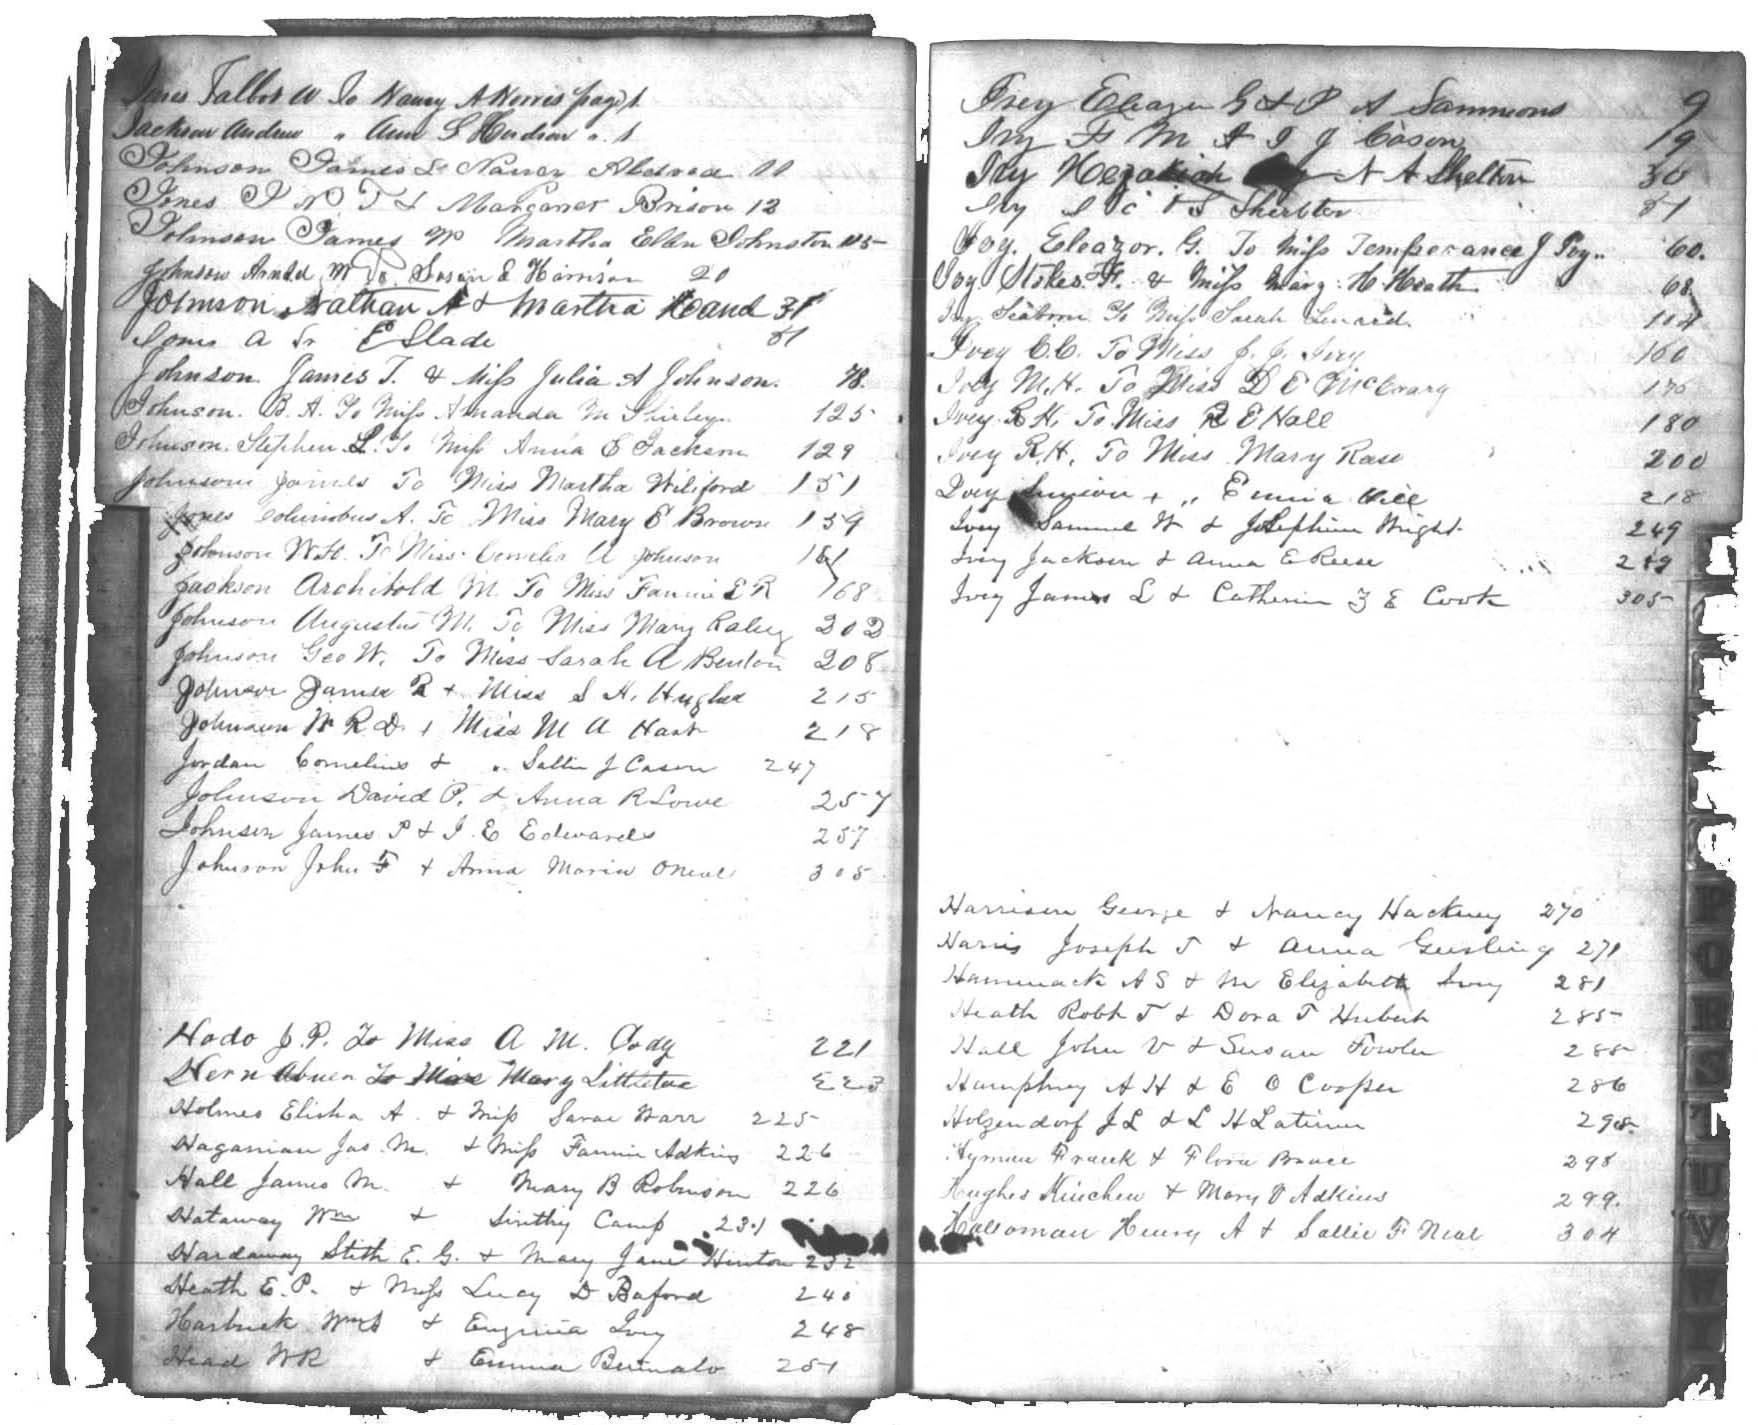 Jones Talbot W To Nancy A Norris page 1
Jackson Andrew " Ann S Hudson " 1
Johnson James & Nancy 11
Jones J W T & Margaret Brison 12
Johnson James W Martha Ellen Johnston 15
Johnson Arnold W To Susan E Harrison 20
Johnson Nathan A & Martha Heand 31
Jones A Sr E Slade 51
Johnson. James T. & Miss Julia A Johnson. 78.
Johnson. B. A. To Miss Amanda M Shirley. 125
Johnson. Stephen L. To Miss Anna E Jackson 129
Johnson James To Miss Martha Wiliford 151
Jones Columbus A. To Miss Mary E Brown 159
Johnson W. H. To Miss Cornelia A Johnson 161
Jackson Archibold M To Miss Fannie E R 168
Johnson Augustus M. To Miss Mary Raley 202
Johnson Geo W. To Miss Sarah A Benton 208
Johnson James R + Miss S H. Hughes 215
Johnson W R D. + Miss M A Hart 218
Jordan Cornelius & " Sallie J Cason 247
Johnson David P. & Anna R Lowe 257
Johnson James P & J. E Edwards 257
Johnson John F + Anna Maria ONeal 305
Hodo J. P. To Miss A M. Cody 221
Hern Abner To Miss Mary Littleton 223
Holmes Elisha A. & Miss Sarae Warr 225
Haganian Jas. M. & Miss Fannie Adkins 226
Hall James M. & Mary B Robinson 226
Hataway Wm & Sinthy Camp 231
Hardaway Stith E. G. & Mary Jane Hinton 232
Heath E. P. & Miss Lucy D Baford 240
Harbuck Wm & Eugenia Ivey 248
Head W R & Emma 251
Ivey Eleazer G & P A Sammons 9
Ivy F M & T J Cason 19
Ivy Hezakiah N A Shelton 30
Ivy S C & S 51
Ivy. Eleazor. G. To Miss Temperance J Ivy.. 60.
Ivy Stokes. F. & Miss Mary. H. Heath 68.
Ivy Seaborn To Miss Sarah Lenard. 104
Ivey C. C. To Miss J. J. Ivey 160
Ivey M. H. To Miss D E McCrary 170
Ivey R H. To Miss R E Hall 180
Ivey R. H. To Miss Mary Rase 200
Ivey Simion + " Emma Hill 218
Ivey Samuel W & Josephine Wright. 249
Ivey Jackson & Anna E Reese 289
Ivey James L & Catherin F E Cook 305
Harrison George & Nancy Hackney 270
Harris Joseph T & Anna Guerling 271
Hammack A S & M Elizabeth Ivey 281
Heath Robt T & Dora T Hubert 285
Hall John V & Susan Fowler 285
Humphrey A H & E O Cooper 286
Holzendorf J L & L H Latimer 298.
Hyman Frank & Flora Brace 298
Hughes Kinchen & Mary V Adkins 299.
Halloman Henry A & Sallie F Neal 304
P
Q
R
S
T
U
V
W